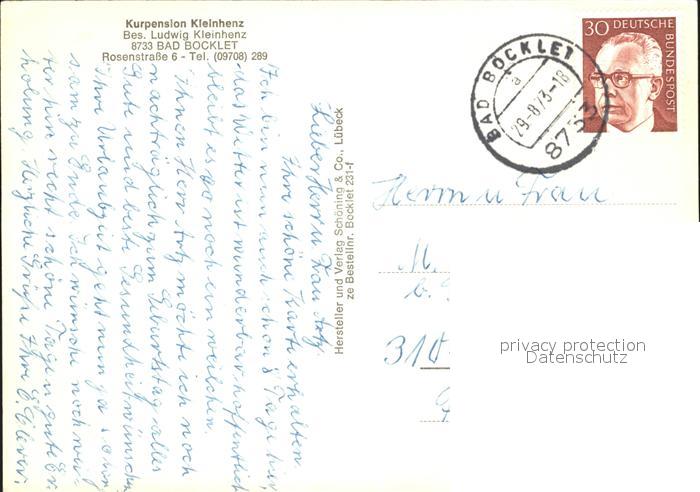 Kurpension Kleinhenz
Bes. Ludwig Kleinhenz
8733 BAD BOCKLET
Rosenstraße 6 - Tel. (09708) 289
30 DEUTSCHE
BUNDESPOST
BAD BOCKLET
a
29-8.73-18
8733
Lieber Herr u Frau Arty
Ihre schöne Karte erhalten.
Ich bin nun auch schon 8 Tage hier,
das Wetter ist wunderbar hoffentlich
bleibt es so noch ein weilchen.
Ihnen Herr Arty möchte ich noch
nachträglich zum Geburtstag alles
Gute und beste Gesundheit wünschen
Ihr Urlaub geht nun ja schon
sam zu Ende. Ich wünsche noch wei
terhin recht schöne Tage u gute Er
holung. Herzliche Grüße Ihre E. Clever.
Hersteller und Verlag Schöning & Co., Lübeck
ze Bestellnr. Bocklet 231-f
Herrn u Frau
M.
b.
310
privacy protection
Datenschutz